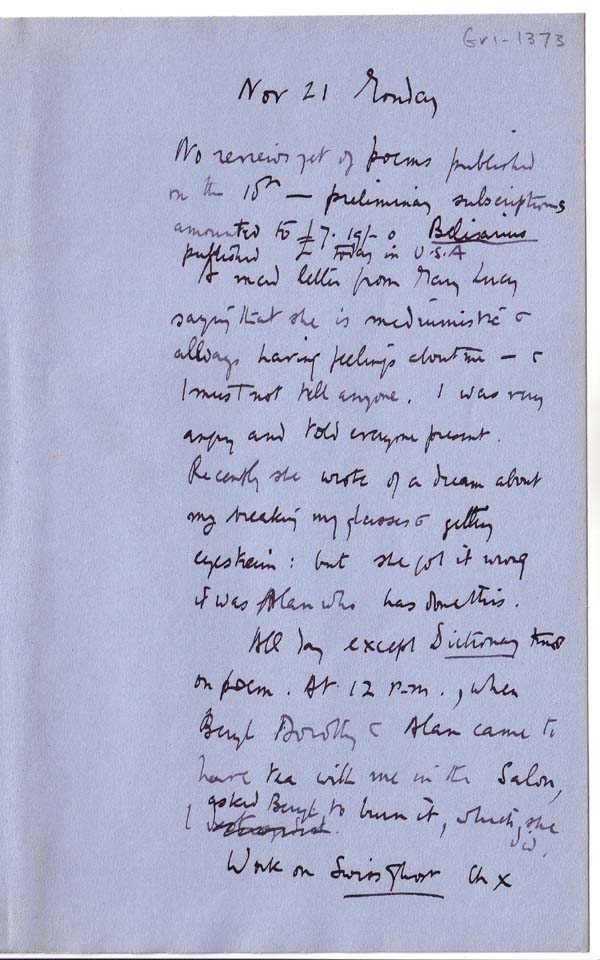 Gr1-1373
Nov 21 Monday
No reviews yet of poems published
on the 18th — preliminary subscriptions
amounted to £7. 19/- 0 Belisarius
published today in U.S.A
A mad letter from Mary Lucy
saying that she is mediumistic &
always having feelings about me — &
I must not tell anyone. I was very
angry and told everyone present.
Recently she wrote of a dream about
my breaking my glasses & getting
eyestrain: but she got it wrong
it was Alan who has done this.
All day except Dictionary
on poem. At 12 p.m., when
Beryl Dorothy & Alan came to
have tea with me in the Salon,
I asked Beryl to burn it, which she
did.
Work on Swiss Ghost Ch X